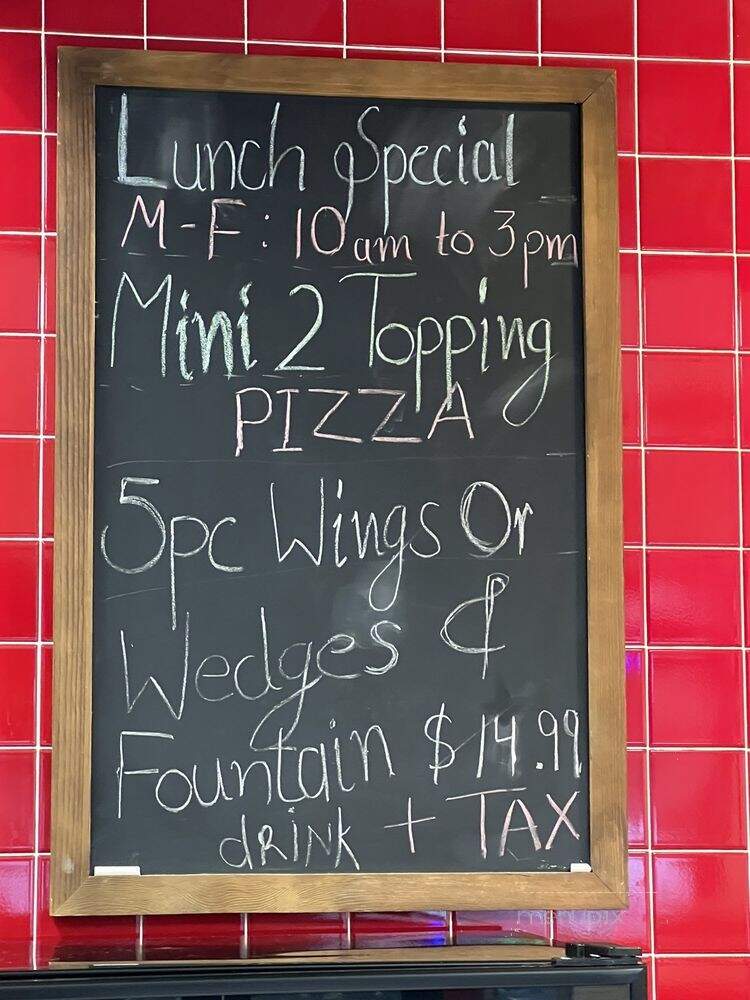 Lunch Special
M-F: 10am to 3pm
Mini 2 Topping
PIZZA
5pc Wings Or
Wedges &
Fountain $14.99
drink + TAX
menupix